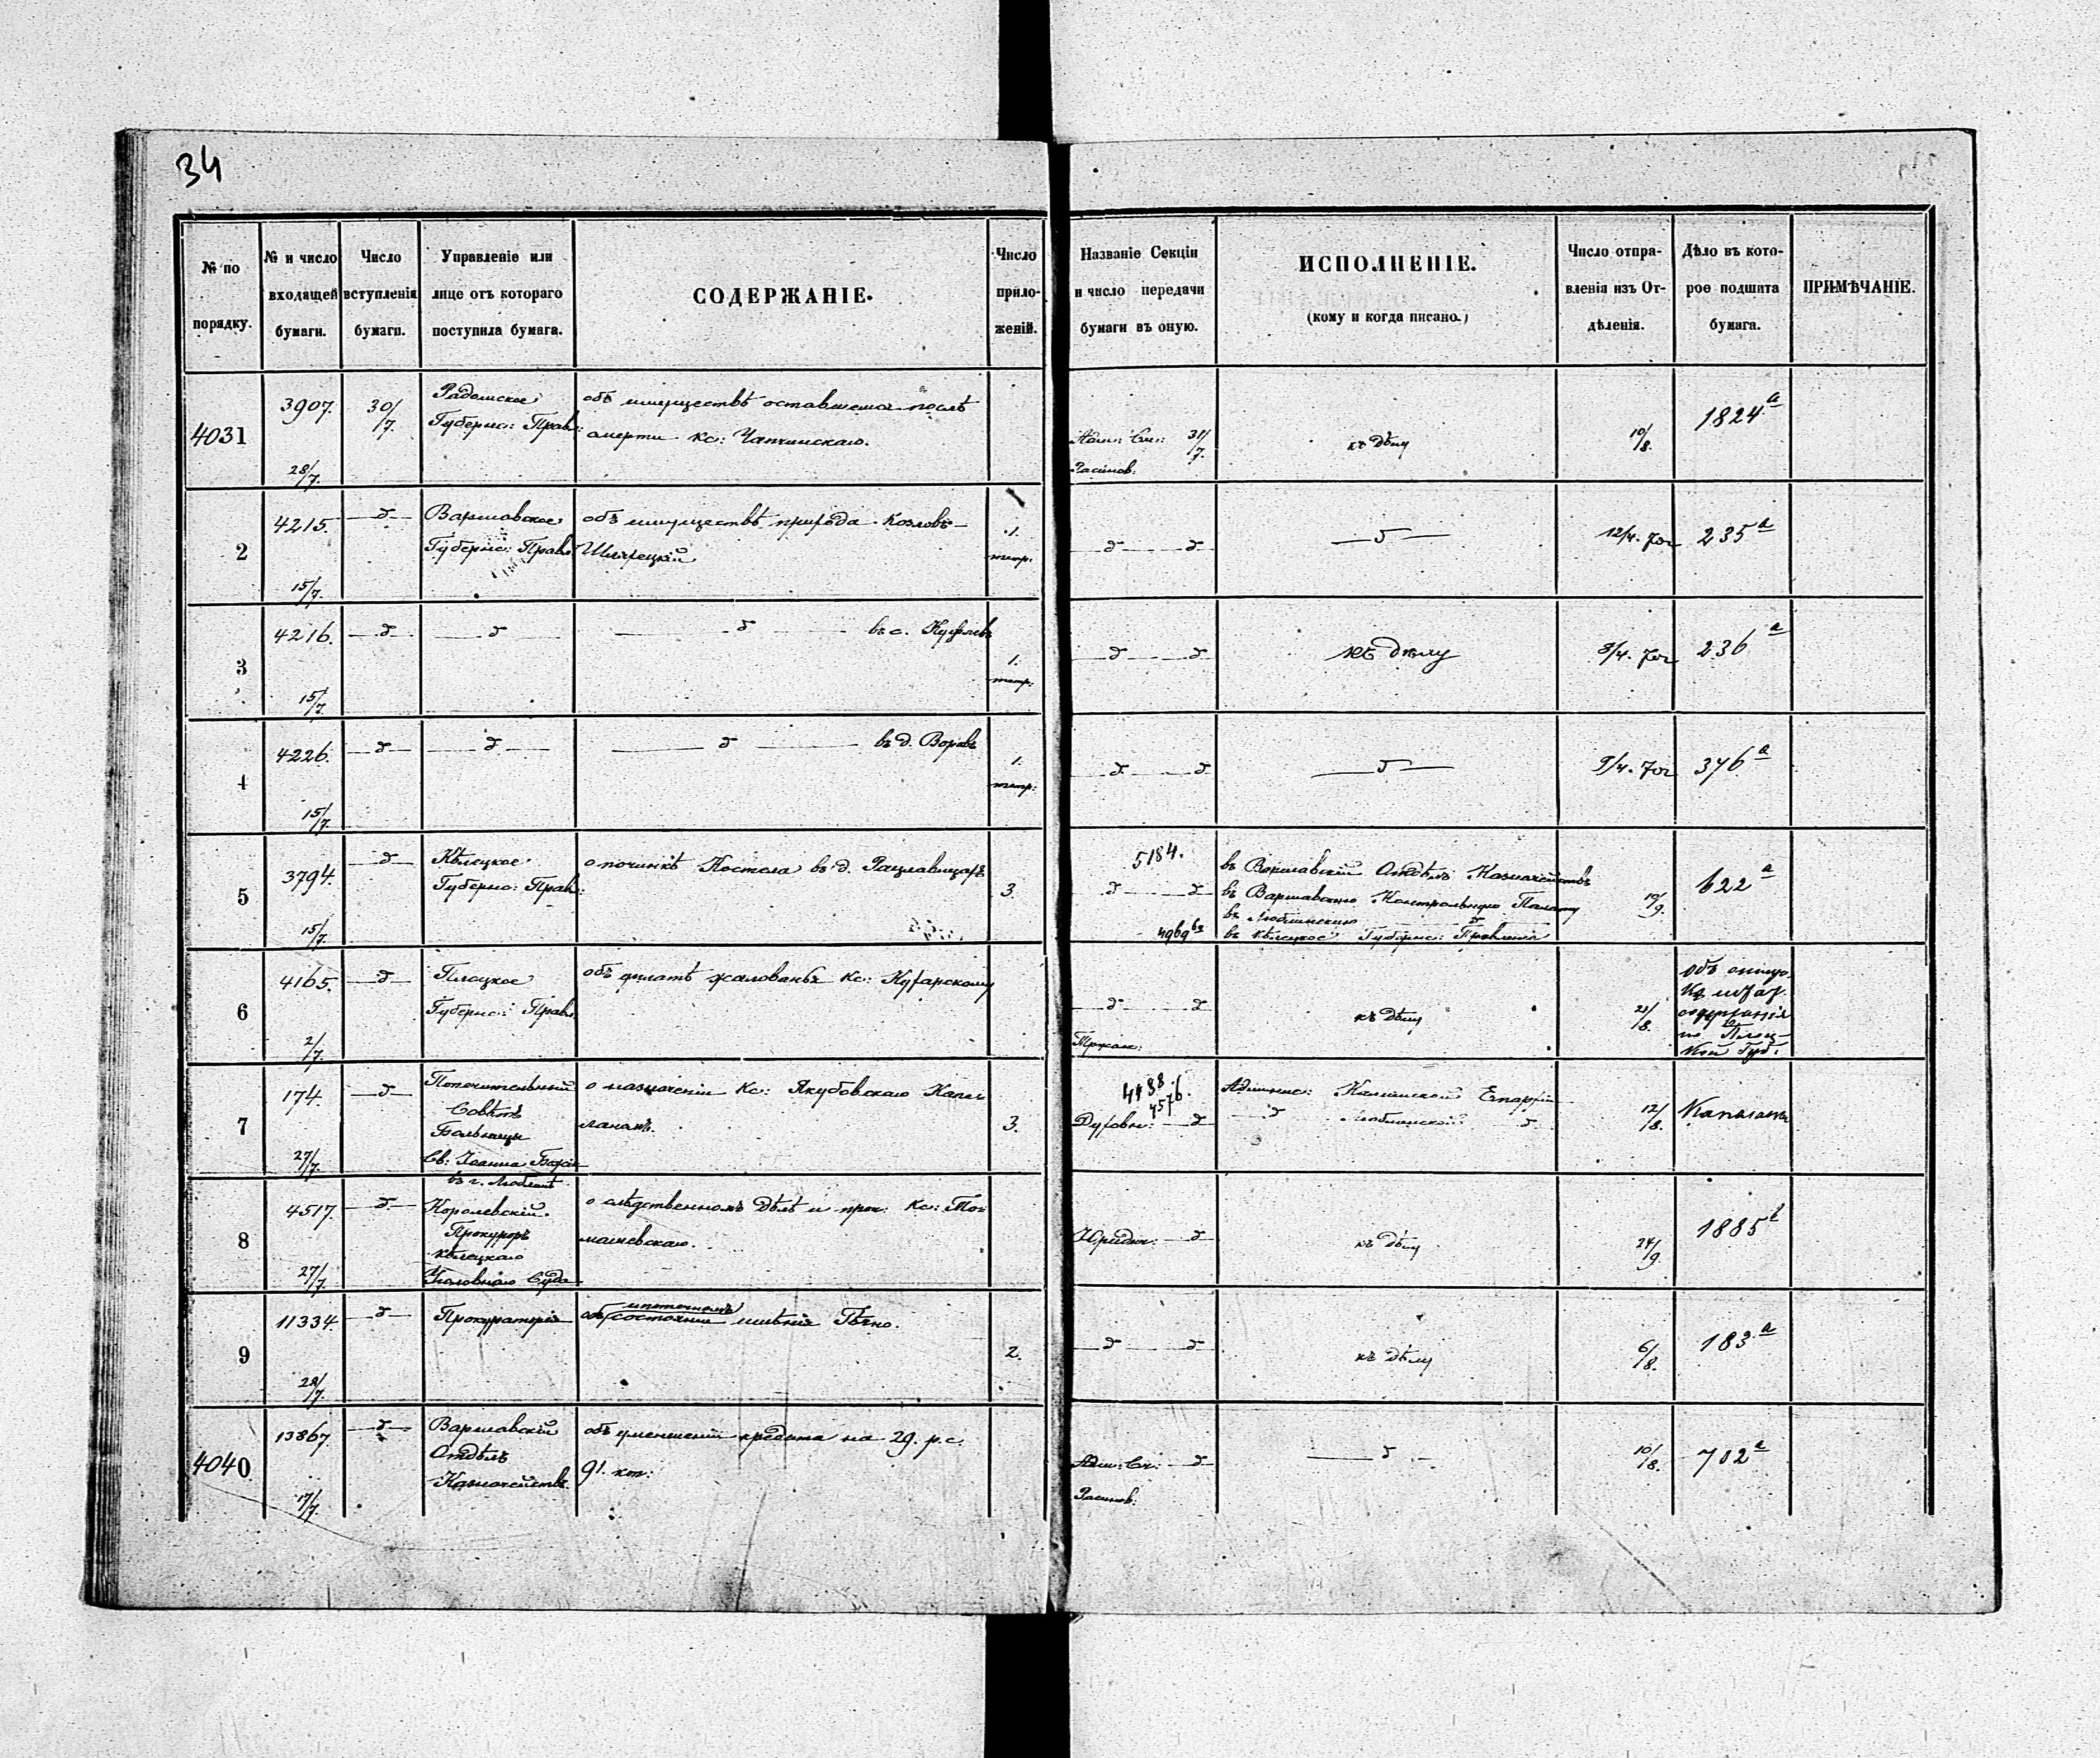 34
№ по порядку.
№ и число входящей бумаги.
Число вступленія бумаги.
Управленіе или лице отъ котораго поступила бумага.
СОДЕРЖАНІЕ.
Число приложеній.
Названіе Секціи и число передачи бумаги въ оную.
ИСПОЛНЕНІЕ.
(кому и когда писано.)
Число отправленія изъ Отдѣленія.
Дѣло въ которое подшита бумага.
ПРИМѢЧАНІЕ.
4031
3907.
28/7.
30/7.
Радомское
Губернс: Прав:
объ имуществѣ оставшемся послѣ
смерти кс:
31/7.
къ дѣлу
10/8.
1824 а
2
4215.
15/7.
—д—
Варшавское
Губернс: Правл
объ имуществѣ прихода Козловъ-
Шляхецкій
1.
—д— —д
—д—
235 а
3
4216.
15/7.
—д—
—д
—д— въ с.
1.
—д— —д
къ дѣлу
236 а
4
4226.
15/7.
—д—
—д—
—д— въ д.
1.
—д— —д
—д—
9/4.
376 а
5
3794.
15/7.
—д—
Кѣлецкое
Губернс: Прав:
о починкѣ Костела въ д. Рацлавицахъ
3.
5184.
д— —д
въ Варшавскій Отдѣлъ Казначействъ
въ Варшавскую Контрольную Палату
въ Люблинскую —д
въ Кѣлецкое Губернс: Правленіе
10/9.
622 а
6
4165.
2/7.
—д—
Плоцкое
Губернс: Правл.
объ уплатѣ жалованья Кс: Кухарскому
—д— —д
къ дѣлу
21/8.
содержанія
по Плоц-
кой Губ:
7
174.
27/7.
—д—
Попечительный
Совѣтъ
Больницы
Св: Іоанна Божія
въ г. Люблинѣ
о назначеніи Кс: Якубовскаго Капел-
ланомъ.
3.
4488.
4576.
Духовн: —д
Админис: Калишской Епархіи
—д Люблинской д.
12/8.
8
4517.
27/7.
—д—
Королевскій
Прокуроръ
Кѣлецкаго
Уголовнаго Суда
о слѣдственномъ дѣлѣ и проч: Кс: То-
машевскаго.
Юридич: —д
къ дѣлу
24/9.
1885
9
11334.
28/7.
—д—
Прокураторія
ипотечномъ
объ состояніи имѣнія
2.
—д— —д
къ дѣлу
6/8.
183 а
4040
13867.
17/7.
—д—
Варшавскій
Отдѣлъ
Казначействъ.
объ уменьшеніи кредита на 29. р. с.
91. коп:
Адм: Сч: —д
—д—
10/8.
702 а